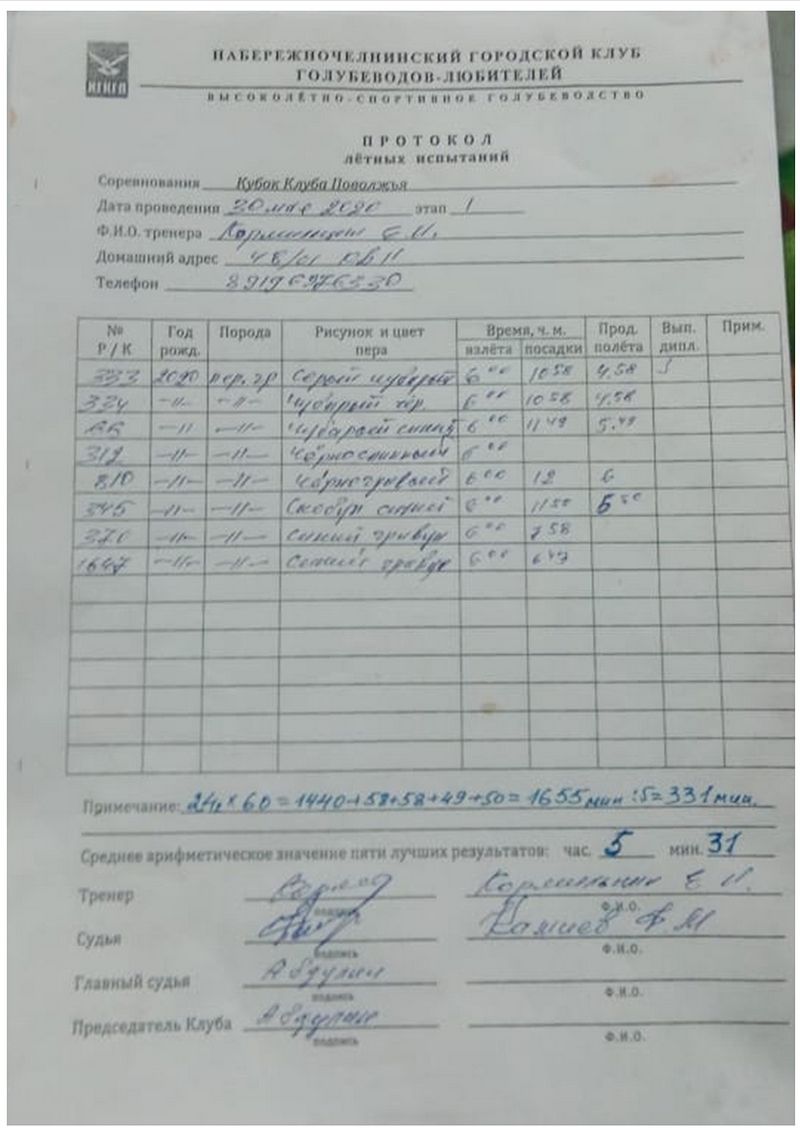 НГКГЛ
НАБЕРЕЖНОЧЕЛНИНСКИЙ ГОРОДСКОЙ КЛУБ
ГОЛУБЕВОДОВ-ЛЮБИТЕЛЕЙ
ВЫСОКОЛЁТНО-СПОРТИВНОЕ ГОЛУБЕВОДСТВО
ПРОТОКОЛ
лётных испытаний
Соревнования Кубок Клуба Поволжья
Дата проведения 30 мая 2020 этап 1
Ф.И.О. тренера Е И.
Домашний адрес
Телефон 89196976330
№ Р / К Год рожд. Порода Рисунок и цвет пера Время, ч. м. взлёта посадки Прод. полёта Вып. дипл. Прим.
333 2020 пер. гр Серый чубарый 6 00 10 58 4.58
334 -//- -//- Чубарый чёр. 6 00 10 58 4.58
-//- -//- Чубарый синий 6 00 11 49 5.49
312 -//- -//- Чёрноспинный 6 00
810 -//- -//- Чёрногривый 6 00 12 6
345 -//- -//- синий 6 00 11 50 5 50
370 -//- -//- Синий гривун 6 00 7 58
1647 -//- -//- Синий гривун 6 00 6 47
Примечание: 24ч × 60 = 1440+58+58+49+50= 1655 мин :5= 331 мин.
Среднее арифметическое значение пяти лучших результатов: час. 5 мин. 31
Тренер Е И.
подпись Ф.И.О.
Судья А М
подпись Ф.И.О.
Главный судья Абдулин
подпись Ф.И.О.
Председатель Клуба Абдулин
подпись Ф.И.О.